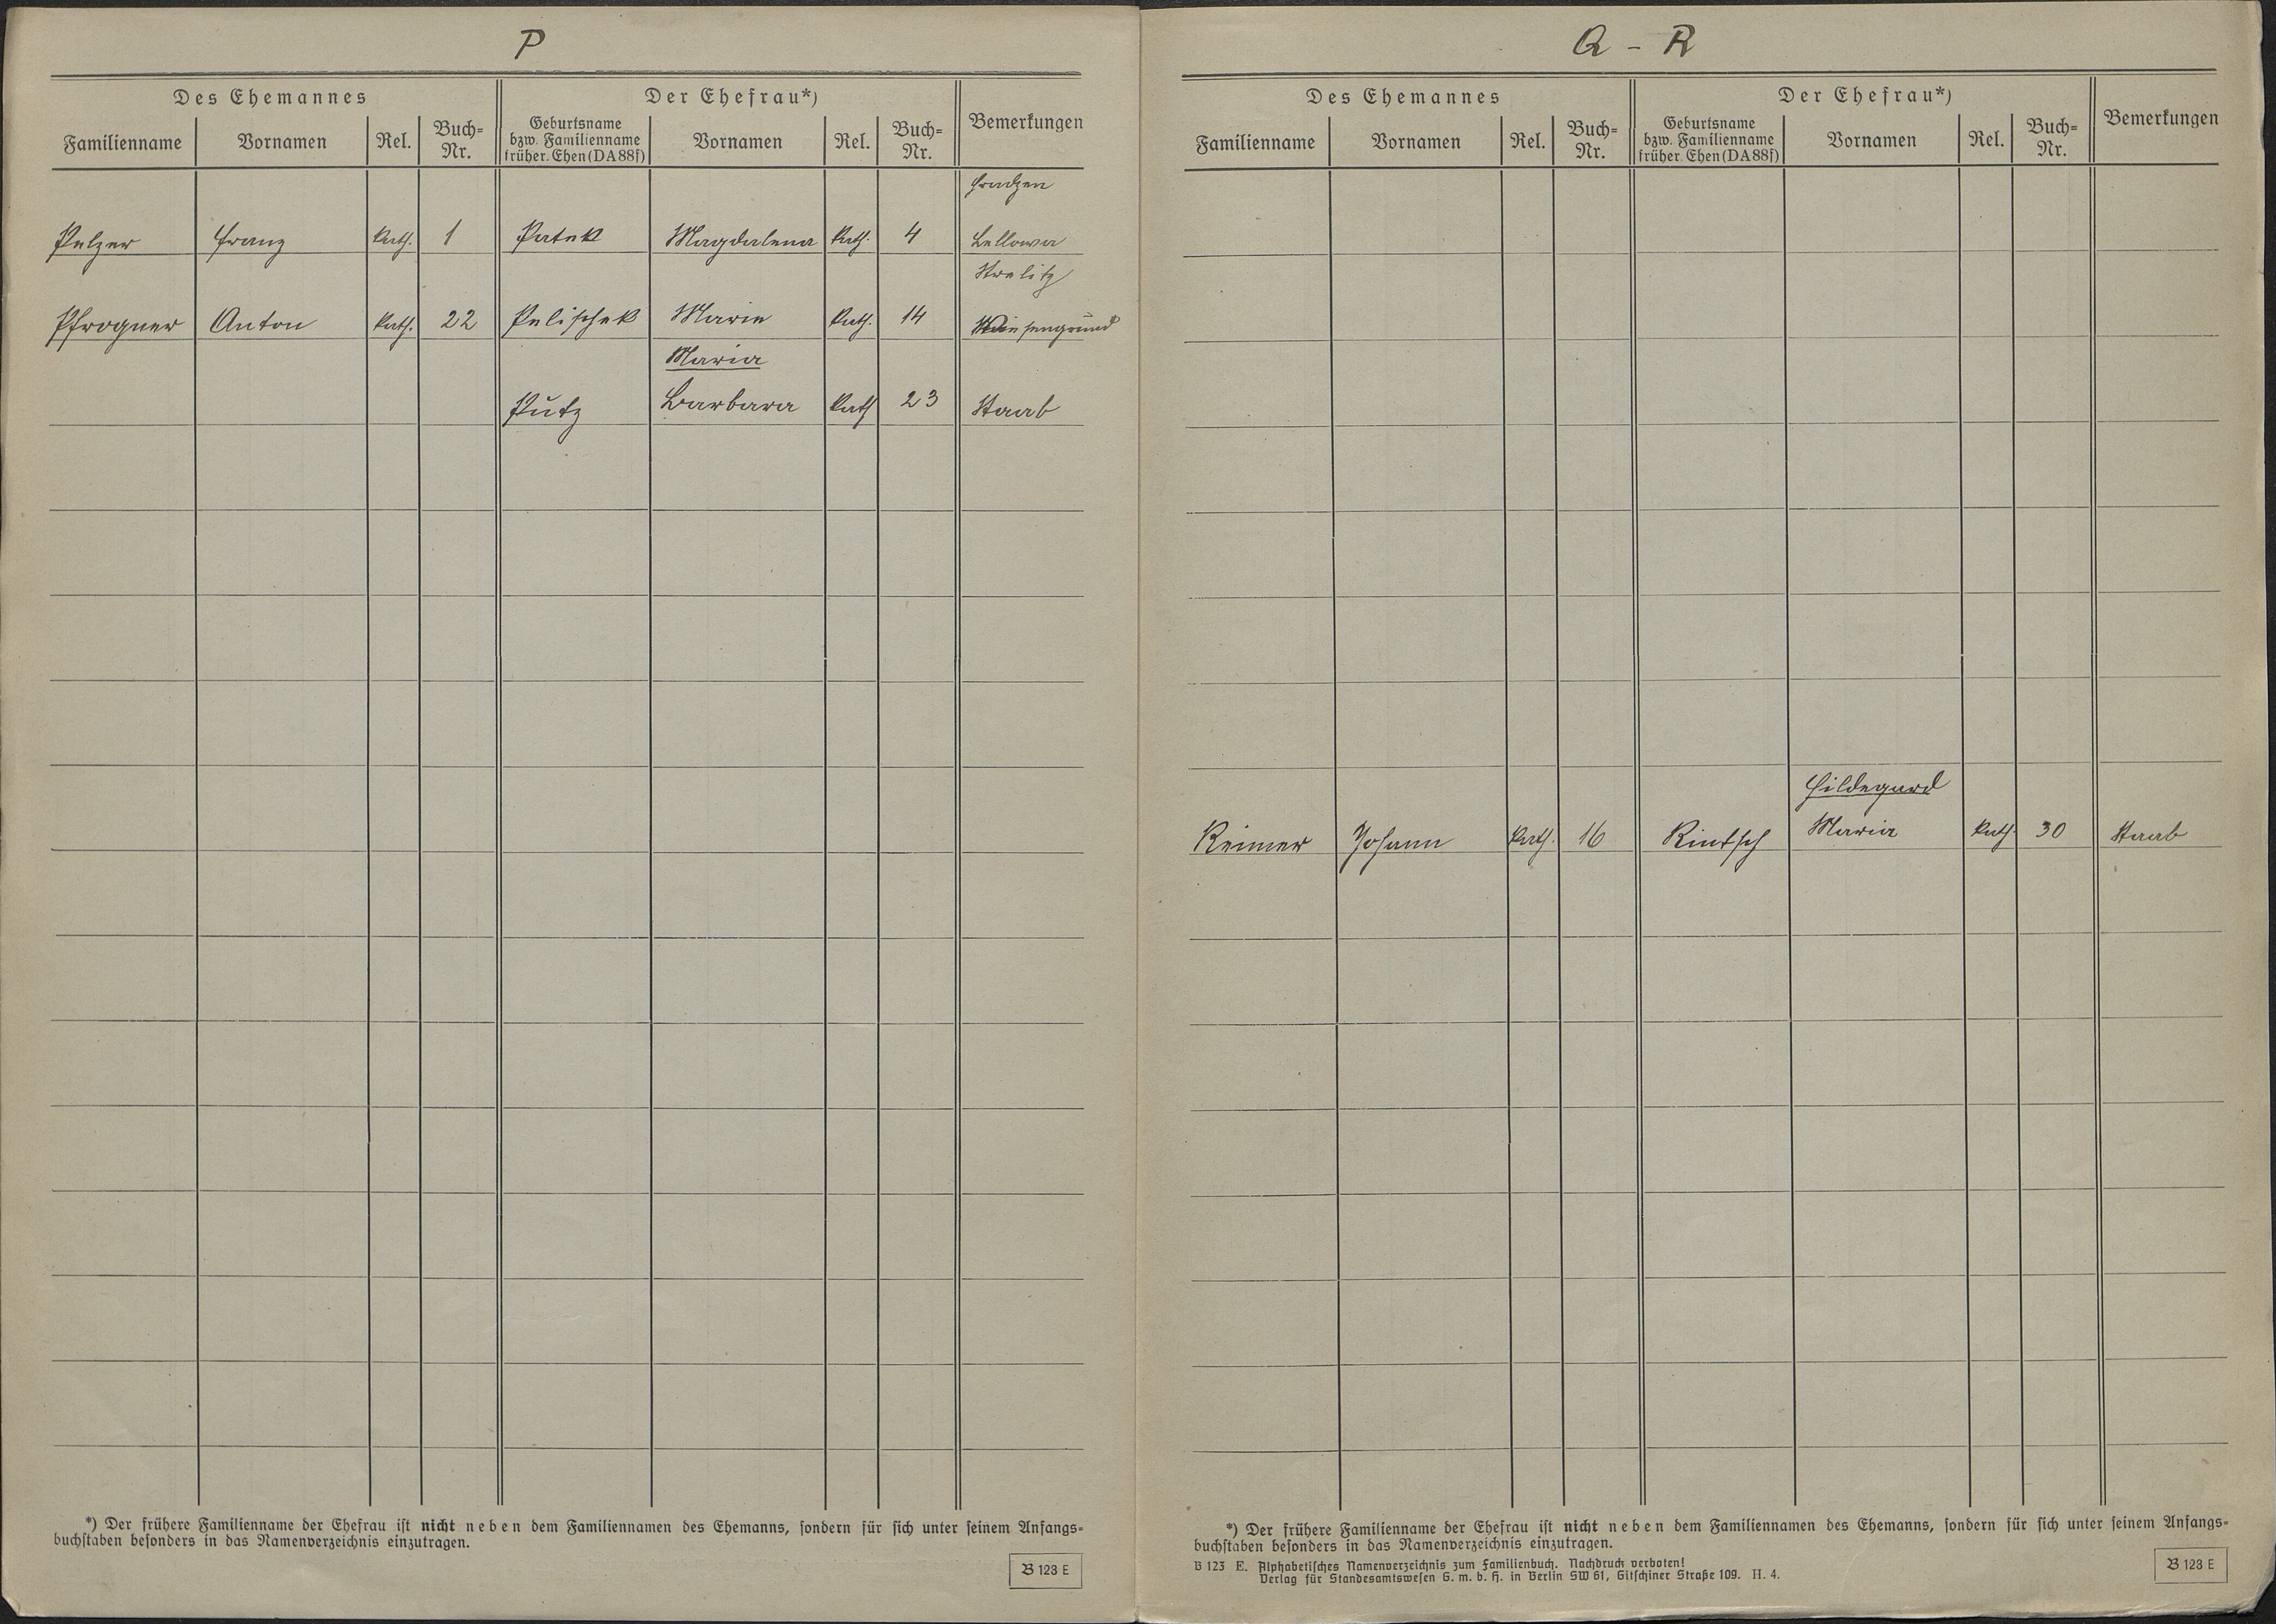 P
Des Ehemannes Der Ehefrau*) Bemerkungen
Familienname Vornamen Rel. Buch-Nr. Geburtsname bzw. Familienname früher. Ehen (DA 88f) Vornamen Rel. Buch-Nr.
Pelzer Franz kath. 1 Patek Magdalena kath. 4 Lellowa
Strelitz
Pfrogner Anton kath. 22 Pelischek Marie kath. 14 Wiesengrund
Maria
Putz Barbara kath 23 Staab
*) Der frühere Familienname der Ehefrau ist nicht neben dem Familiennamen des Ehemanns, sondern für sich unter seinem Anfangs-
buchstaben besonders in das Namenverzeichnis einzutragen.
B 123 E
Q - R
Des Ehemannes Der Ehefrau*) Bemerkungen
Familienname Vornamen Rel. Buch-Nr. Geburtsname bzw. Familienname früher. Ehen (DA 88f) Vornamen Rel. Buch-Nr.
Hildegard
Reimer Johann kath. 16 Rintsch Maria kath. 30 Staab
*) Der frühere Familienname der Ehefrau ist nicht neben dem Familiennamen des Ehemanns, sondern für sich unter seinem Anfangs-
buchstaben besonders in das Namenverzeichnis einzutragen.
B 123 E. Alphabetisches Namenverzeichnis zum Familienbuch. Nachdruck verboten!
Verlag für Standesamtswesen G. m. b. H. in Berlin SW 61, Gitschiner Straße 109. II. 4.
B 123 E